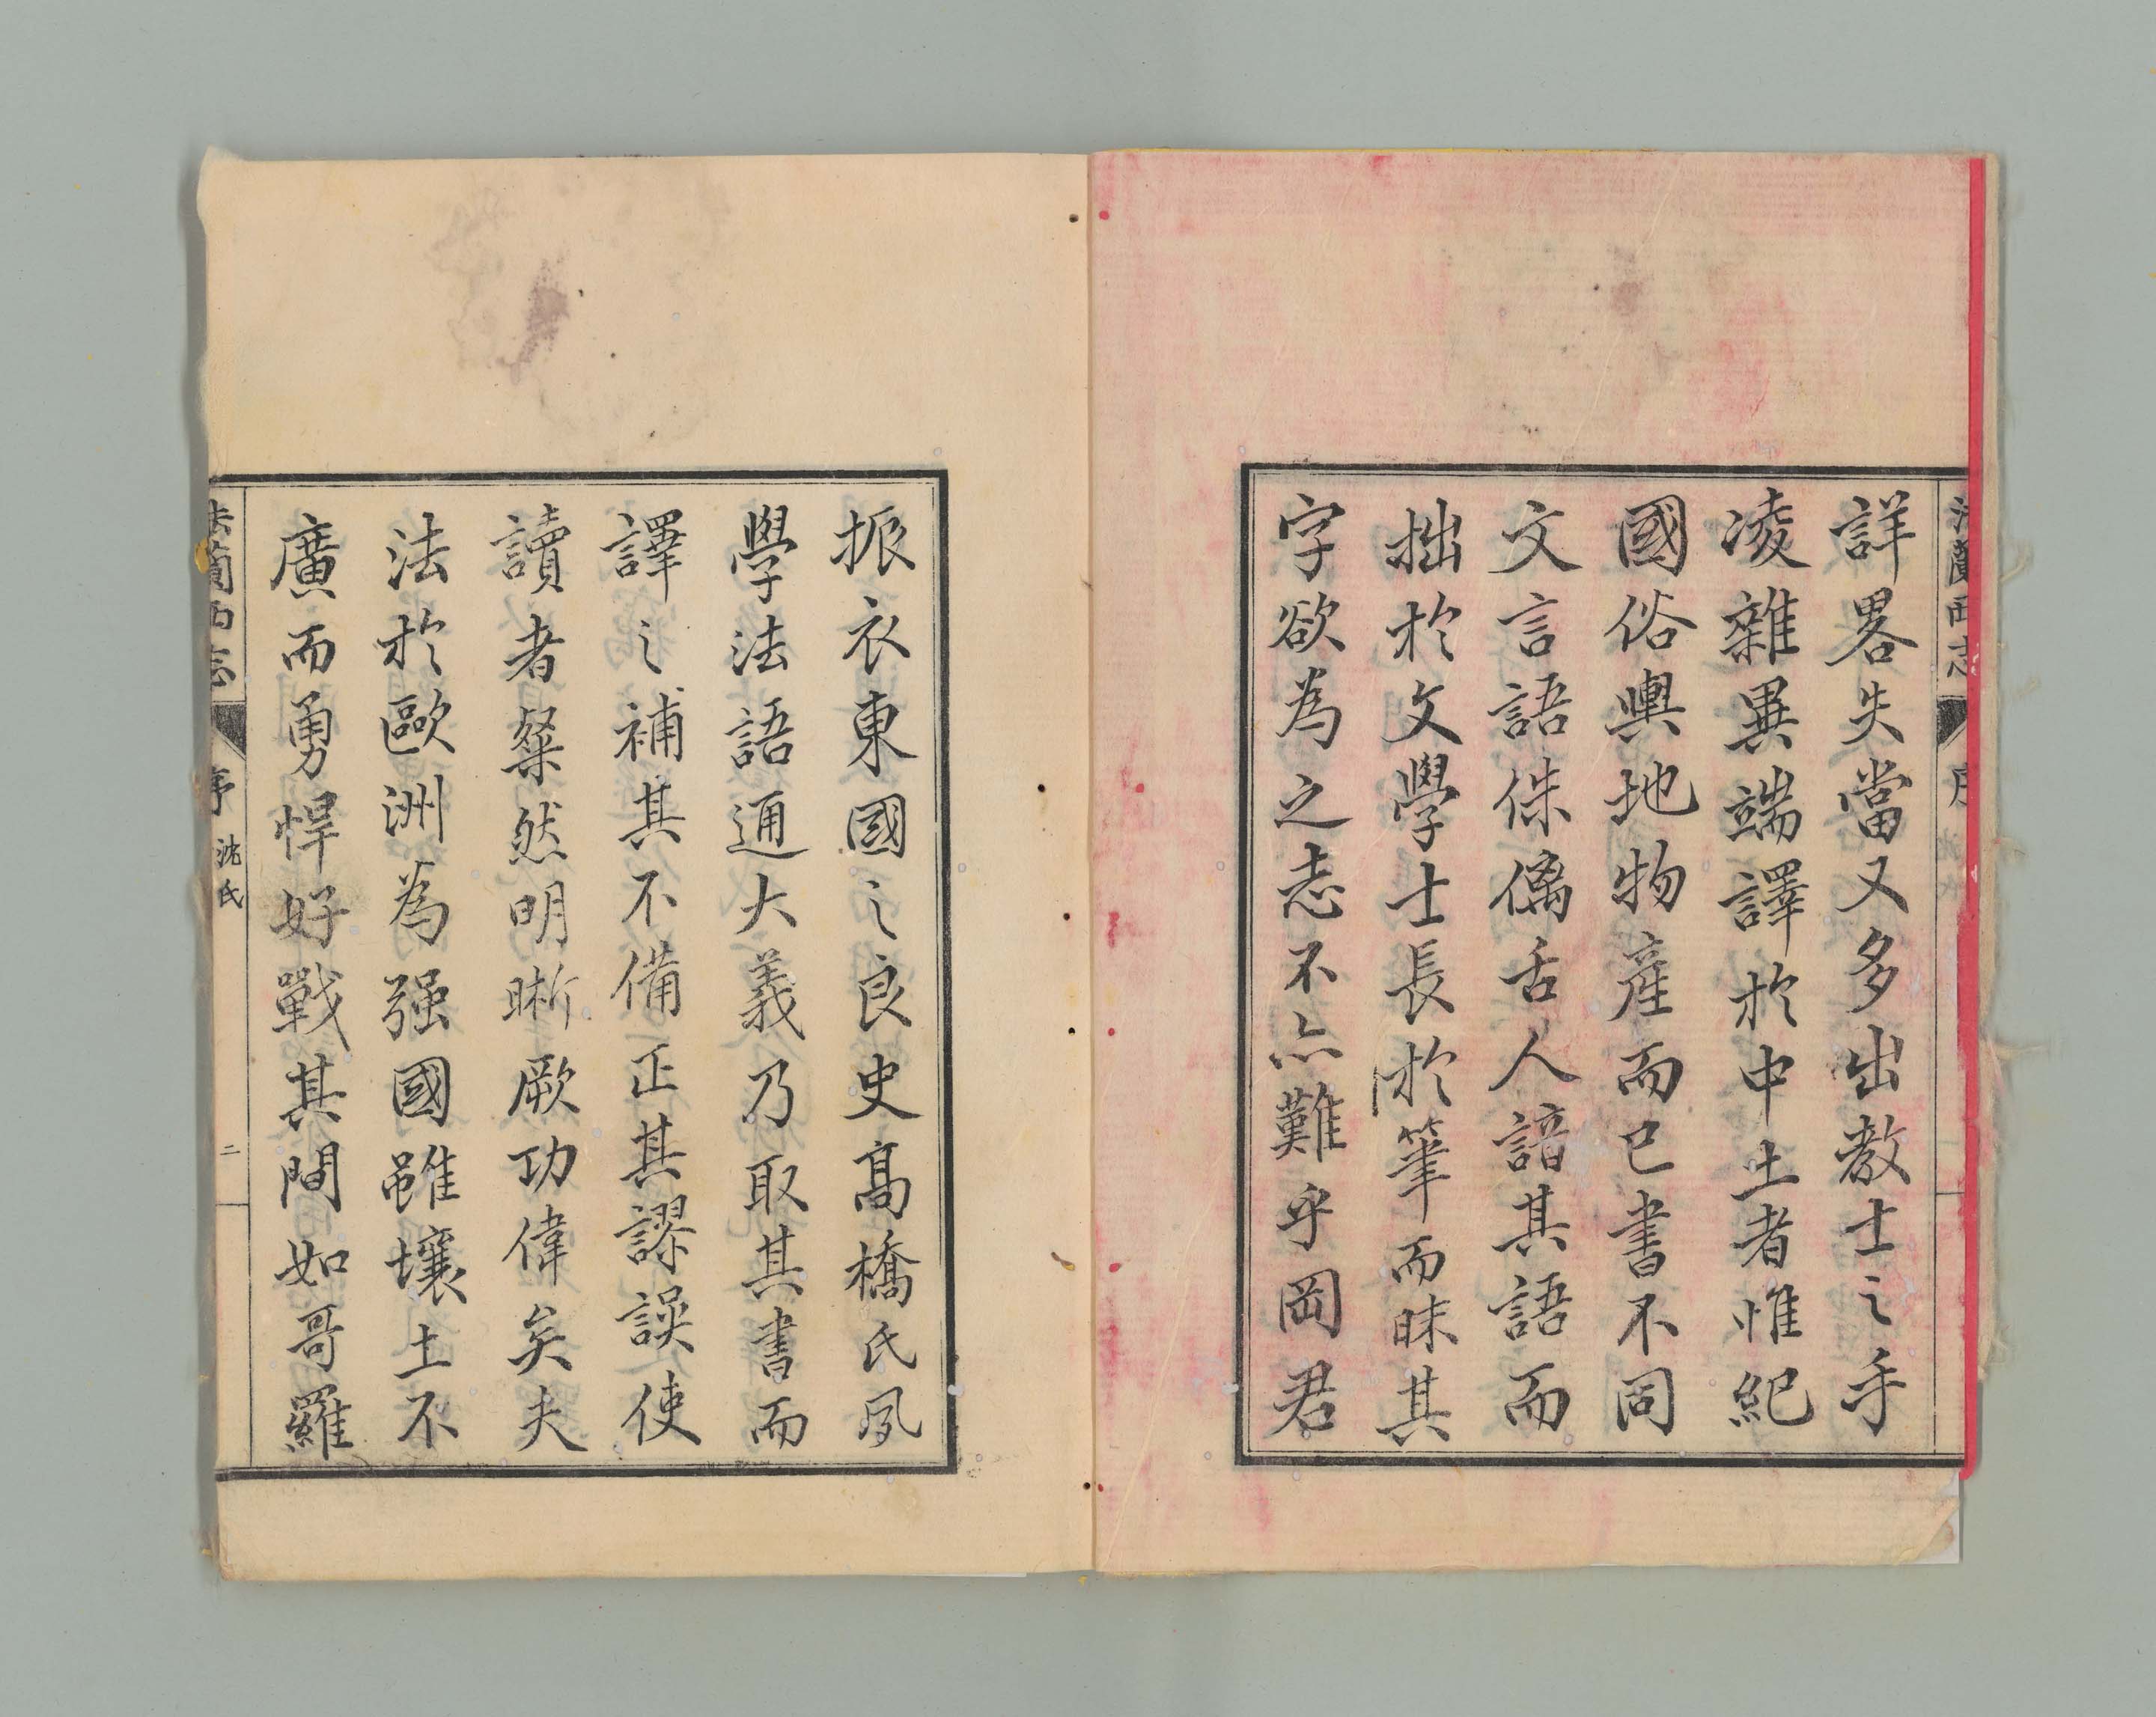 詳畧失當又多出教士之手
凌雜異端譯於中土者惟紀
國俗輿地物產而已書不同
文言語侏㒧舌人諳其語而
拙於文學士長於筆而昧其
字欲為之志不亦難乎岡君
振衣東國之良史髙橋氏夙
學法語通大義乃取其書而
譯之補其不備正其謬誤使
讀者粲然明晰厥功偉矣夫
法於歐洲為强國雖壤土不
廣而勇悍好戰其間如哥羅
法蘭西志
序
沈氏
二